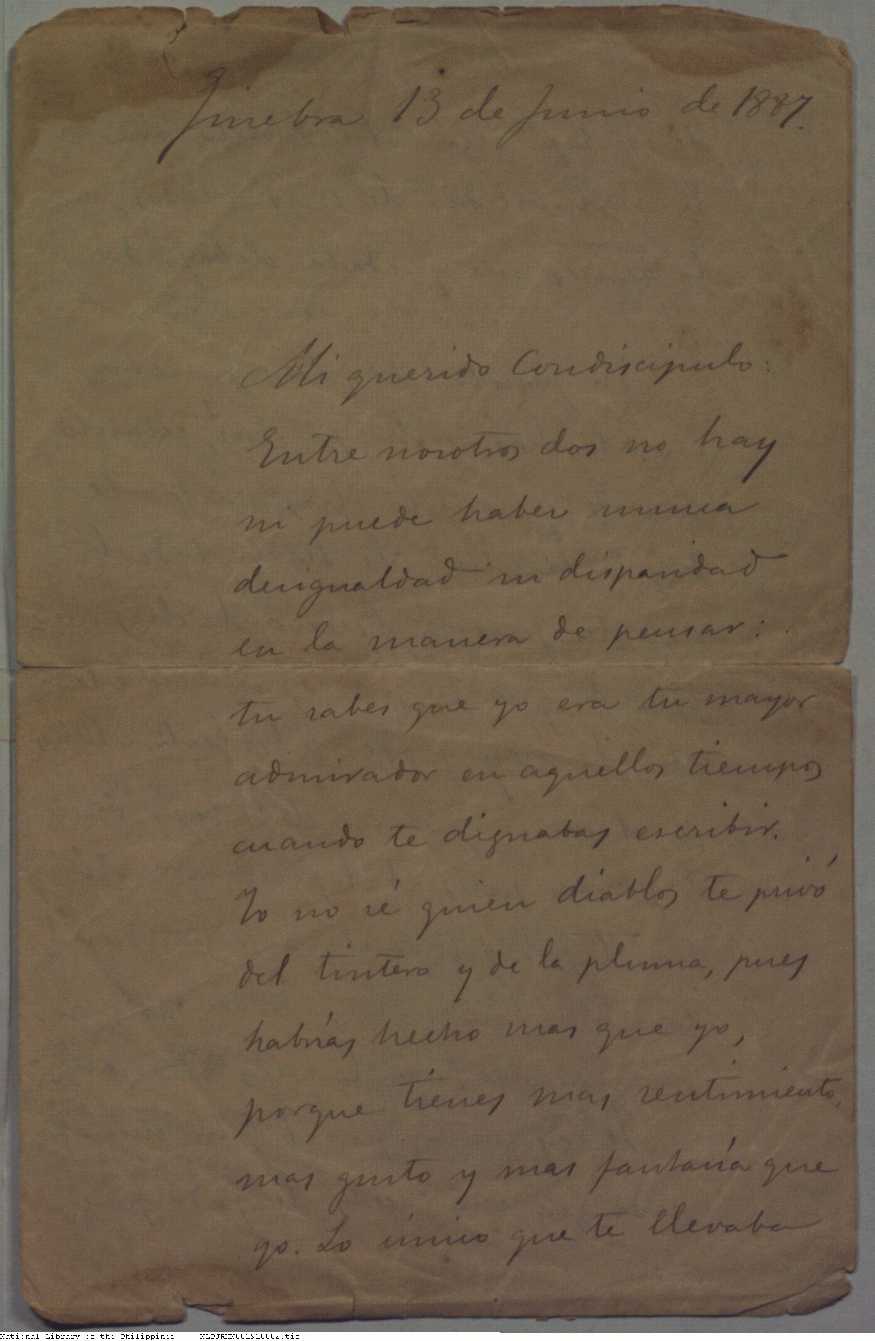 Ginebra 13 de Junio de 1887.
Mi querido Condiscipulo:
Entre nosotros dos no hay
ni puede haber nunca
desigualdad ni disparidad
en la manera de pensar:
tu sabes que yo era tu mayor
admirador en aquellos tiempos
cuando te dignabas escribir.
Yo no sé quien diablos te privó
del tintero y de la pluma, pues
habrías hecho mas que yo,
porque tienes mas sentimiento,
mas gusto y mas fantasía que
yo. Lo único que te llevaba
National Library of the Philippines